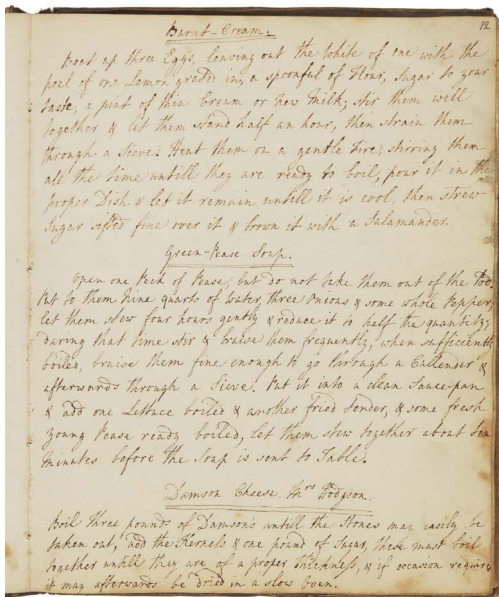 12
Burnt-Cream.
Beat up three Eggs, leaving out the White of one with the
peel of one Lemon grated in, a spoonful of Flour, Sugar to your
taste, a pint of thin Cream or New Milk; stir them well
together & let them stand half an hour, then strain them
through a Sieve. Heat them on a gentle Fire, stirring them
all the time untill they are ready to boil, pour it in the
proper Dish & let it remain untill it is cool, then strew
Sugar sifted fine over it & brown it with a Salamander.
Green-Pease Soup.
Open one Peck of Pease, but do not take them out of the Pod.
Put to them Nine quarts of Water, three Onions & some whole Pepper,
let them stew four hours gently & reduce it to half the quantity;
during that time stir & bruise them frequently, when sufficiently
boiled, bruise them fine enough to go through a Cullender &
afterwards through a Sieve. Put it into a clean Sauce-pan
& add one Lettuce boiled & another fried tender, & some fresh
young Pease ready boiled, let them stew together about ten
Minutes before the Soup is sent to Table.
Damson Cheese. Mrs Hodgson.
Boil three pounds of Damsons untill the Stones may easily be
taken out, add the Kernels & one pound of Sugar, these must boil
together untill they are of a proper thickness, & if occasion require
it may afterwards be dried in a slow Oven.